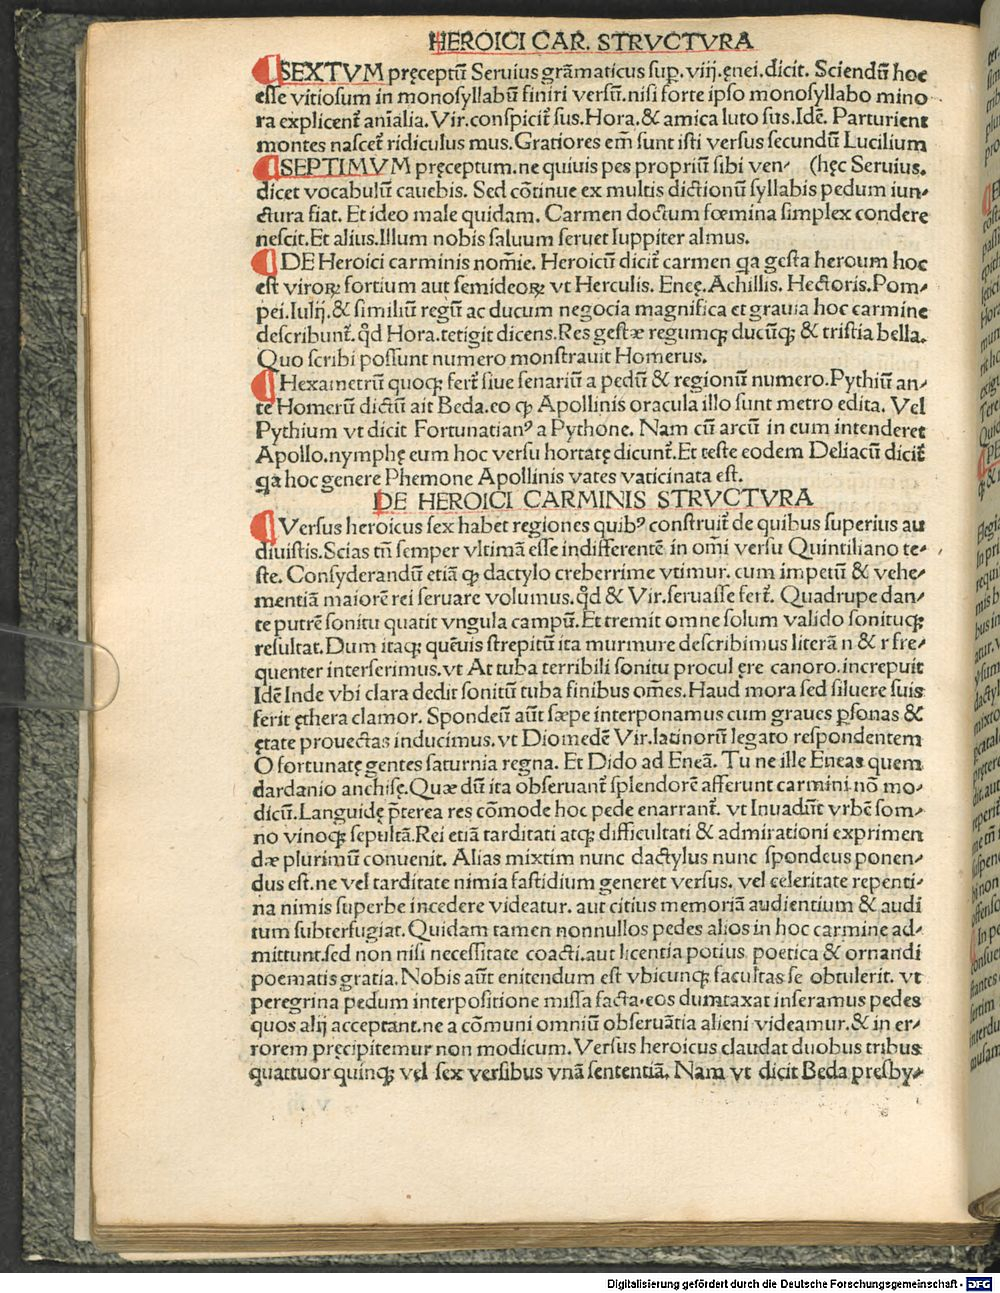 HEROICI CAR. STRVCTVRA
¶ SEXTVM pręceptũ Seruius grãmaticus suꝑ. viij.ęnei.dicit. Sciendũ hoc
esse vitiosum in monosyllabũ finiri versũ.nisi forte ipso monosyllabo mino
ra explicent᷑ aniãlia. Vir.conspicit᷑ sus.Hora.& amica luto sus.Idẽ. Parturient
montes nascet᷑ ridiculus mus.Gratiores em̃ sunt isti versus secundũ Lucilium
¶ SEPTIMVM pręceptum.ne quiuis pes propriũ sibi ven- (hęc Seruius.
dicet vocabulũ cauebis. Sed cõtinue ex multis dictionũ syllabis pedum iun-
ctura fiat. Et ideo male quidam. Carmen doctum fœmina simplex condere
nescit.Et alius.Illum nobis saluum seruet Iuppiter almus.
¶ DE Heroici carminis nom̃ie. Heroicũ dicit᷑ carmen qa gesta heroum hoc
est viroꝝ fortium aut semideoꝝ vt Herculis. Eneę. Achillis. Hectoris.Pom-
pei.Iulij.& similiũ regũ ac ducum negocia magnifica et grauia hoc carmine
describunt᷑. qd̃ Hora.tetigit dicens.Res gestæ regumqꝫ ducũqꝫ & tristia bella.
Quo scribi possunt numero monstrauit Homerus.
¶ Hexametrũ quoqꝫ fert᷑ siue senariũ a pedũ & regionũ numero.Pythiũ an-
te Homerũ dictũ ait Beda.eo ꝙ Apollinis oracula illo sunt metro edita. Vel
Pythium vt dicit Fortunatianꝰ a Pythone. Nam cũ arcũ in eum intenderet
Apollo.nymphę eum hoc versu hortatę dicunt᷑.Et teste eodem Deliacũ dicit᷑
qa hoc genere Phemone Apollinis vates vaticinata est.
DE HEROICI CARMINIS STRVCTVRA
¶ Versus heroicus sex habet regiones quibꝰ construit᷑ de quibus superius au
diuistis.Scias tñ semper vltimã esse indifferentẽ in om̃i versu Quintiliano te-
ste. Consyderandũ etiã ꝙ dactylo creberrime vtimur. cum impetũ & vehe-
mentiã maiorẽ rei seruare volumus.qd̃ & Vir.seruasse fert᷑. Quadrupe dan-
te putrẽ sonitu quatit vngula campũ. Et tremit omne solum valido sonituqꝫ
resultat. Dum itaqꝫ quẽuis strepitũ ita murmure describimus literã n & r fre-
quenter interserimus.vt At tuba terribili sonitu procul ęre canoro.increpuit
Idẽ Inde vbi clara dedit sonitũ tuba finibus om̃es.Haud mora sed siluere suis
ferit ęthera clamor. Spondeũ aũt sæpe interponamus cum graues ꝑsonas &
ętate prouectas inducimus. vt Diomedẽ Vir.latinorũ legato respondentem
O fortunatę gentes saturnia regna. Et Dido ad Eneã. Tu ne ille Eneas quem
dardanio anchisę.Quæ dũ ita obseruant᷑ splendorẽ afferunt carmini.nõ mo-
dicũ.Languidę p̃terea res cõmode hoc pede enarrant᷑. vt Inuadũt vrbẽ som-
no vinoqꝫ sepultã.Rei etiã tarditati atqꝫ difficultati & admirationi exprimen
dæ plurimũ conuenit. Alias mixtim nunc dactylus nunc spondeus ponen-
dus est.ne vel tarditate nimia fastidium generet versus. vel celeritate repenti-
na nimis superbe incedere videatur. aut citius memoriã audientium & audi
tum subterfugiat. Quidam tamen nonnullos pedes alios in hoc carmine ad-
mittunt.sed non nisi necessitate coacti.aut licentia potius poetica & ornandi
poematis gratia. Nobis aũt enitendum est vbicunqꝫ facultas se obtulerit. vt
peregrina pedum interpositione missa facta.eos dumtaxat inseramus pedes
quos alij acceptant.ne a cõmuni omniũ obseruãtia alieni videamur.& in er-
rorem pręcipitemur non modicum. Versus heroicus claudat duobus tribus
quattuor quinqꝫ vel sex versibus vnã sententiã. Nam vt dicit Beda presby-
Digitalisierung gefördert durch die Deutsche Forschungsgemeinschaft - DFG